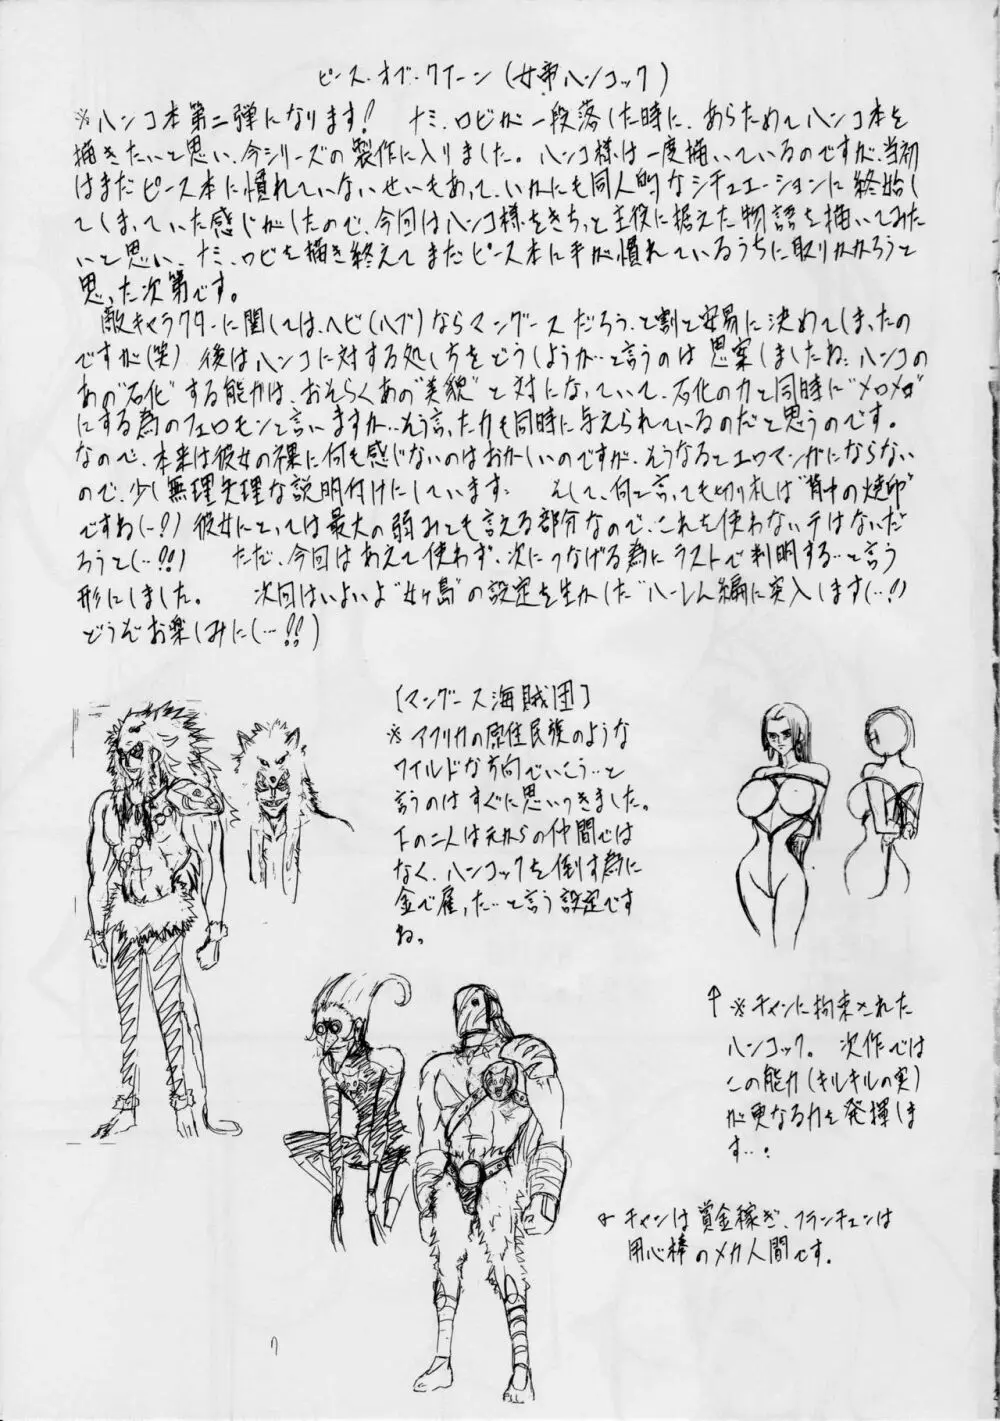 ピース・オブ・クイーン(女帝ハンコック)
※ハンコ本第二弾になります! ナミ、ロビが一段落した時に、あらためてハンコ本を
描きたいと思い、今シリーズの製作に入りました。ハンコ様は一度描いているのですが、当初
はまだピース本に慣れていないせいもあって、いかにも同人的なシチュエーションに終始し
てしまっていた感じがしたので、今回はハンコ様をきちっと主役に据えた物語を描いてみた
いと思い、ナミ、ロビを描き終えてまだピース本に手が慣れているうちに取りかかろうと
思った次第です。
敵キャラクターに関しては、ヘビ(ハブ)ならマングースだろう、と割と安易に決めてしまったの
ですが(笑) 後はハンコに対する処し方をどうしようか…と言うのは思案しましたね。ハンコの
あの"石化"する能力は、おそらくあの"美貌"と対になっていて、石化の力と同時に"メロメロ"
にする為のフェロモンと言いますか…そう言った力も同時に与えられているのだと思うのです。
なので、本来は彼女の裸に何も感じないのはおかしいのですが、そうなるとエロマンガにならない
ので、少し無理矢理な説明付けにしています。 そして、何と言っても切り札は"背中の焼印"
ですね(…!?) 彼女にとっては最大の弱みとも言える部分なので、これを使わないテはないだ
ろうと(…!!) ただ、今回はあえて使わず、次につなげる為にラストで判明する…と言う
形にしました。 次回はいよいよ"女ヶ島"の設定を生かした"ハーレム編に突入します(…!!)
どうぞお楽しみに(…!!)
[マングース海賊団]
※アフリカの原住民族のような
ワイルドな方向でいこう…と
言うのはすぐに思いつきました。
下の二人は元からの仲間では
なく、ハンコックを倒す為に
金で雇った…と言う設定です
ね。
↑※チャンに拘束された
ハンコック。 次作では
この能力(キルキルの実)
が更なる力を発揮しま
す…!
チャンは賞金稼ぎ、フランチェンは
用心棒のメカ人間です。